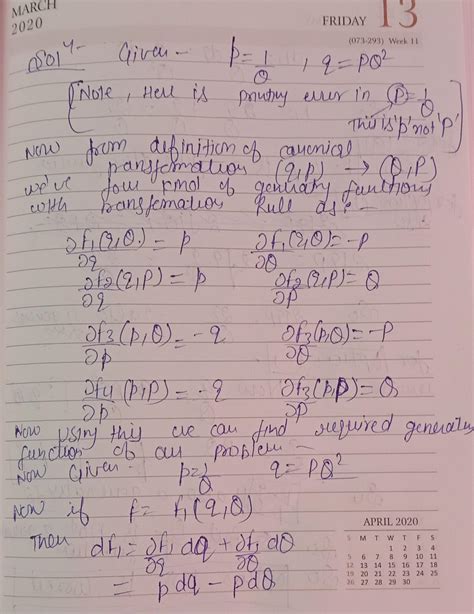 MARCH
2020
FRIDAY 13
(073-293) Week 11
Sol<sup>n</sup>- Given - p = 1/Q , q = PQ²
[Note, Here is printing error in P = 1/Q
This is 'p' not 'P']
Now from definition of canonical
transformation (q,p) → (Q,P)
we've four of generating functions
with transformation Rule as: -
∂f₁(q,Q)/∂q = p ∂f₁(q,Q)/∂Q = -P
∂f₂(q,P)/∂q = p ∂f₂(q,P)/∂P = Q
∂f₃(p,Q)/∂p = -q ∂f₃(p,Q)/∂Q = -P
∂f₄(p,P)/∂p = -q ∂f₃(p,P)/∂P = Q
Now using this we can find required generating
function of our problem -
Now Given - p = 1/Q q = PQ²
Now if f = f₁(q,Q)
Then df₁ = ∂f₁/∂q dq + ∂f₁/∂Q dQ
= p dq - P dQ
APRIL 2020
S M T W T F S
1 2 3 4
5 6 7 8 9 10 11
12 13 14 15 16 17 18
19 20 21 22 23 24 25
26 27 28 29 30